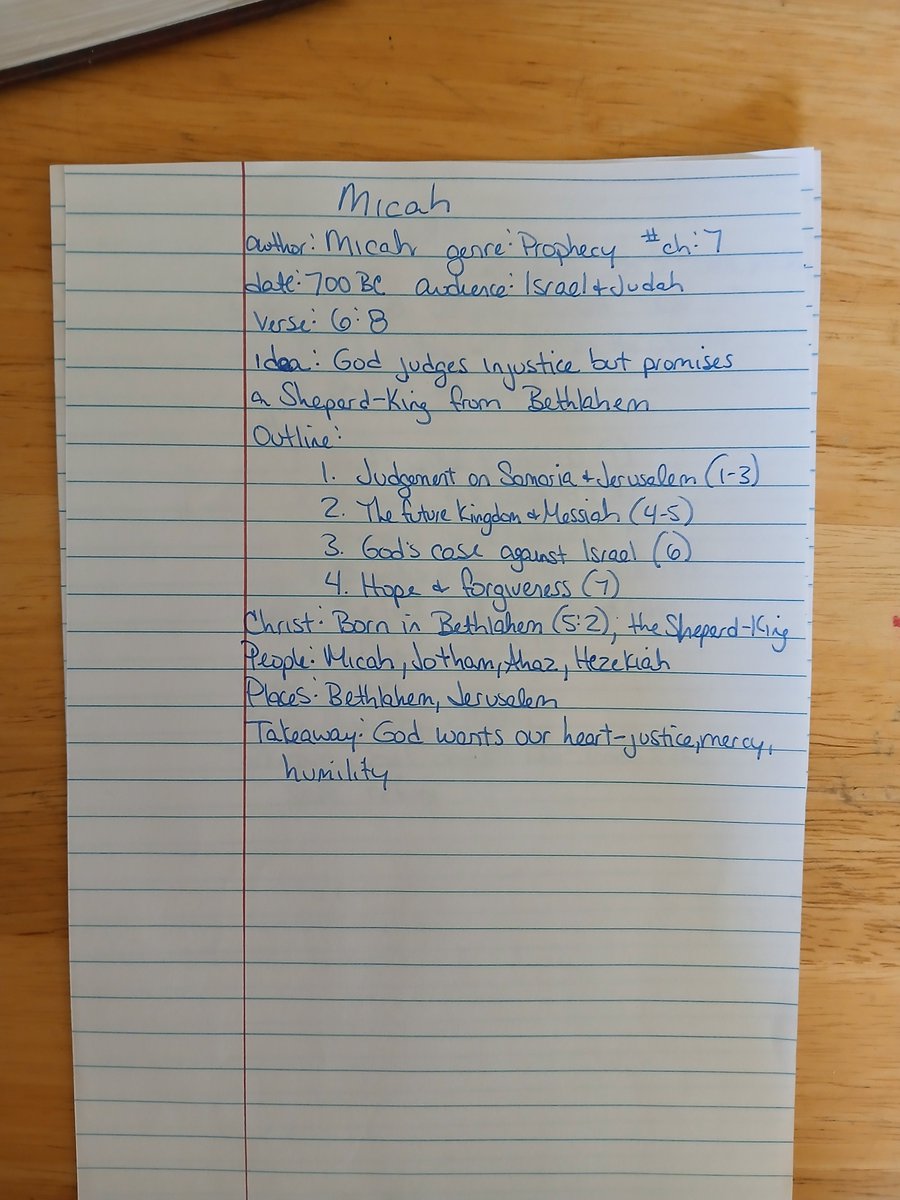 Micah
author: Micah genre: Prophecy #ch: 7
date: 700 BC audience: Israel & Judah
Verse: 6:8
Idea: God judges injustice but promises
a Sheperd-King from Bethlahem
Outline:
1. Judgement on Samaria & Jerusalem (1-3)
2. The future kingdom & Messiah (4-5)
3. God's case against Israel (6)
4. Hope & forgiveness (7)
Christ: Born in Bethlahem (5:2), the Sheperd-King
People: Micah, Jotham, Ahaz, Hezekiah
Places: Bethlahem, Jerusalem
Takeaway: God wants our heart-justice, mercy,
humility